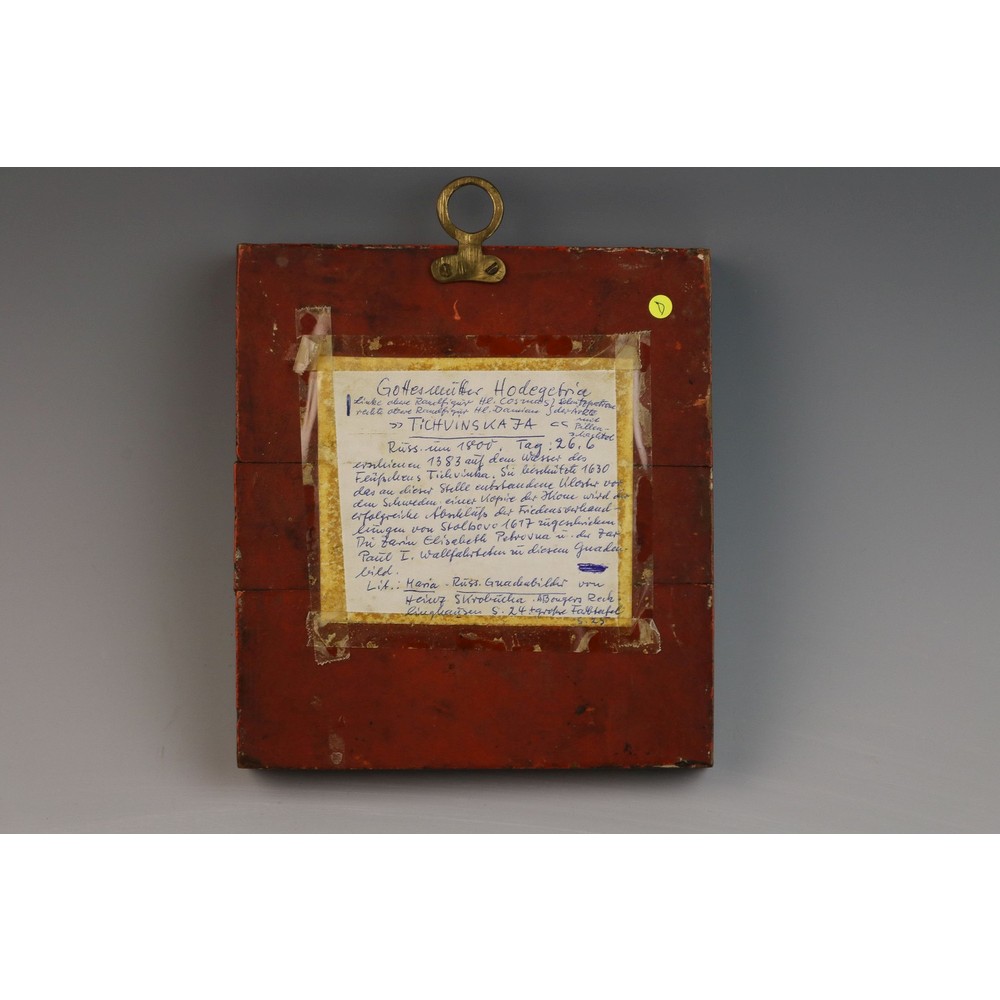 D
Gottesmutter Hodegetria
Linke obere Randfigur Hl. Cosmas } Schutzpatrone
rechte obere Randfigur Hl. Damian } der Ärzte
und
>> TICHVINSKAJA <<
Russ. um 1800. Tag: 26.6
erschienen 1383 auf dem Wasser des
Flüßchens Tichvinka. Sie beschützte 1630
das an dieser Stelle entstandene Kloster vor
den Schweden, einer Kopie der Ikone wird der
erfolgreiche Abschluß der Friedensverhand-
lungen von Stolbovo 1617 zugeschrieben
Die Zarin Elisabeth Petrovna u. der Zar
Paul I. wallfahrteten zu diesem Gnaden-
bild.
Lit.: Maria - Russ. Gnadenbilder von
Heinz Skrobucha. A Bongers Reck-
linghausen S. 24 + große Farbtafel
S. 25